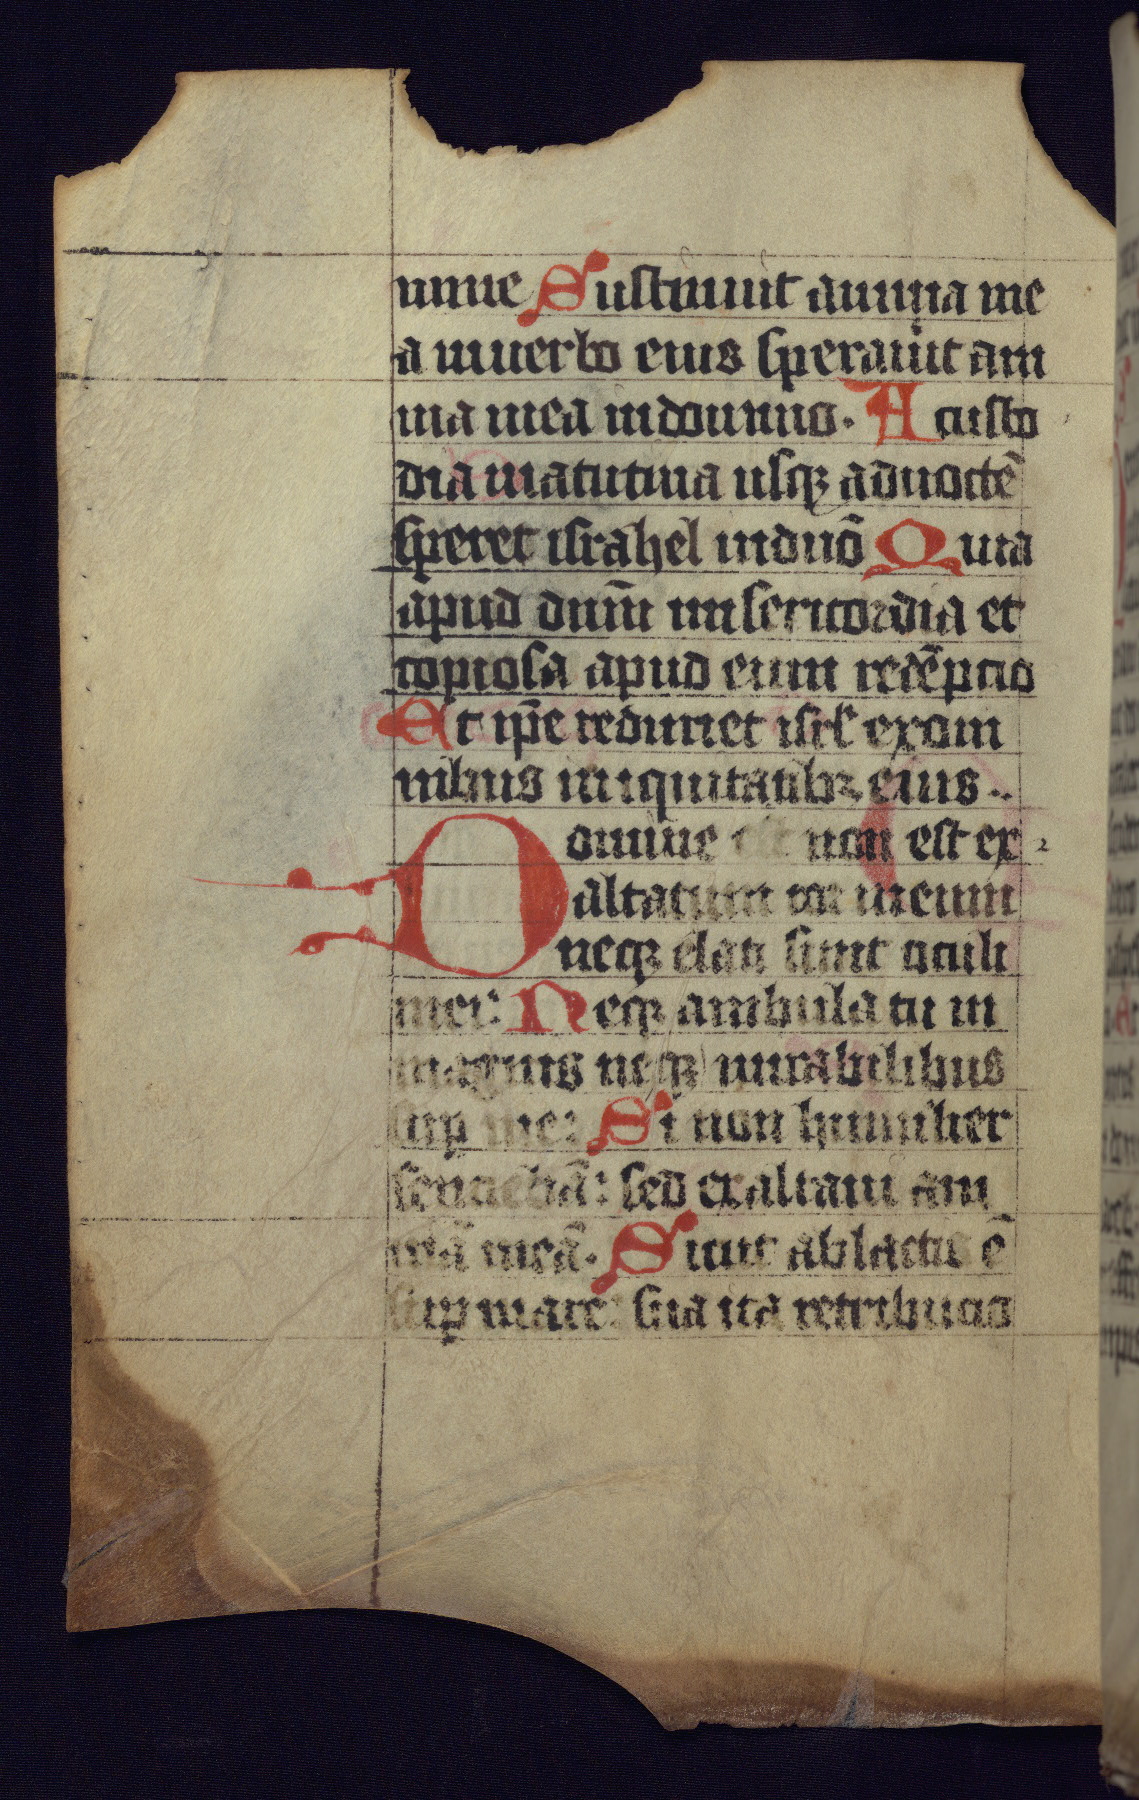 mine Sustinuit anima me
a inuerbo eius sperauit ani
ma mea indomino. A custo
dia matutina usqȝ adnoctē
speret israhel indnō Quia
apud dnm̄ misericordia et
copiosa apud eum redēptio
Et ip̄e redimet isrl̄ exom
nibus iniquitatibȝ eius.
Domine non est ex
altatum cor meum
neqȝ elati sunt oculi
mei: Neqȝ ambulaui in
magnis neqȝ mirabilibus
sup̱ me: Si non humiliter
sentiebā: sed exaltaui ani
mā meā. Sicut ablactatus ē
sup̱ matre sua ita retributio